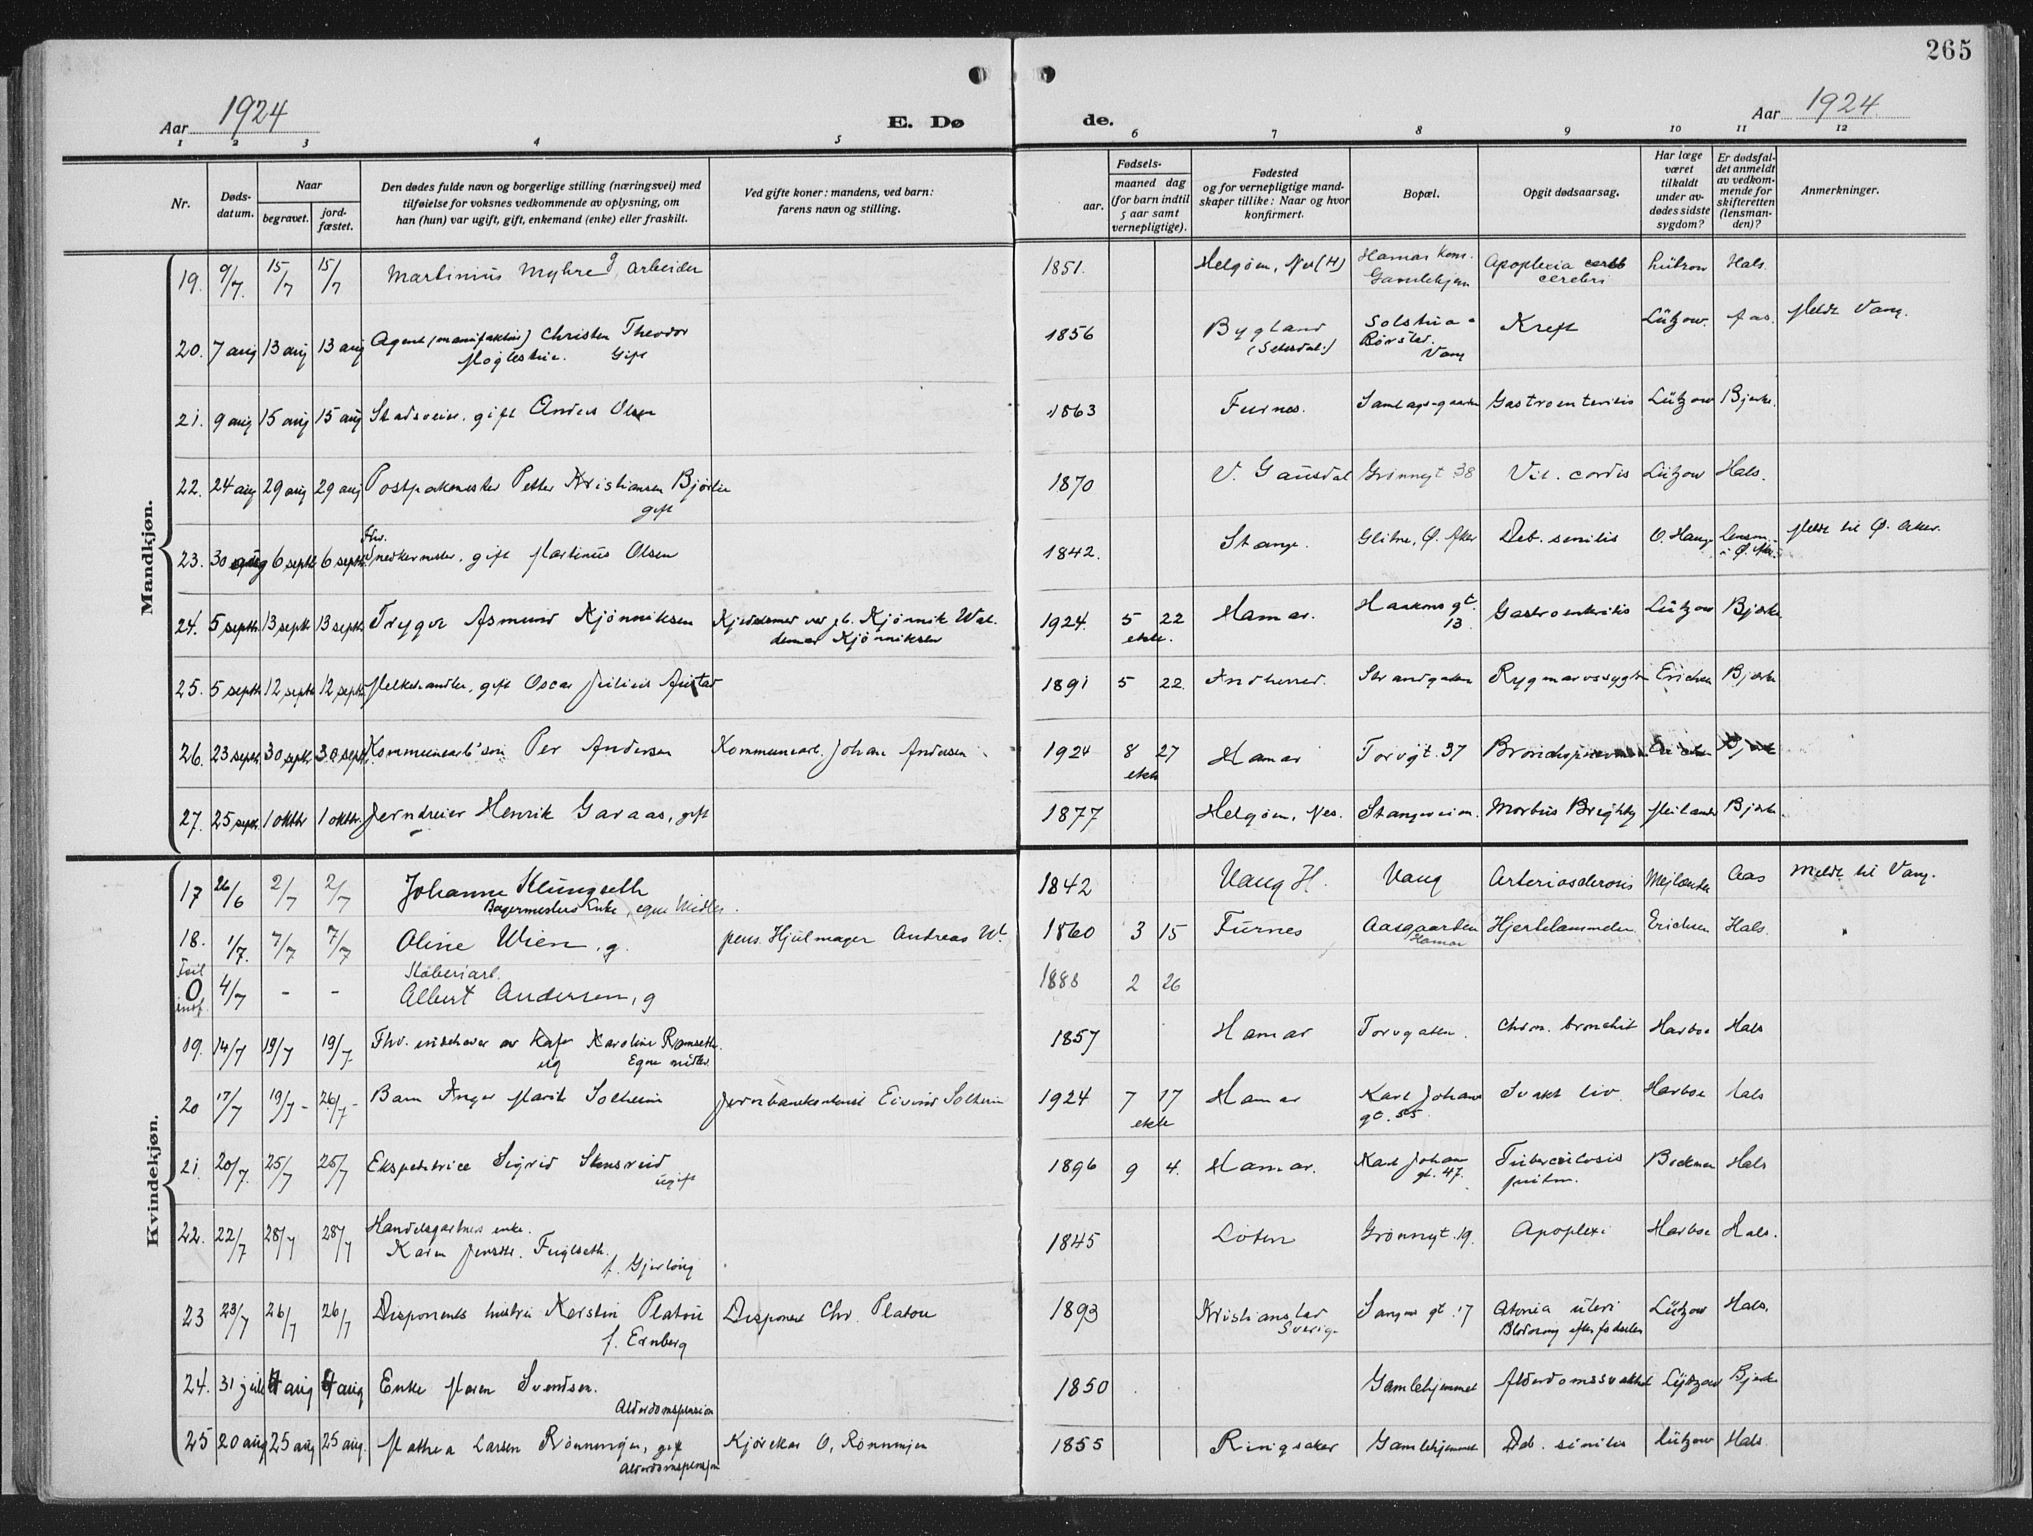 265
Aar 1924
E. Dø
de.
Aar 1924
1 2 3 4 5 6 7 8 9 10 11 12
Nr.
Døds-
datum.
Naar
begravet.
jord-
fæstet.
Den dødes fulde navn og borgerlige stilling (næringsvei) med
tilføielse for voksnes vedkommende av oplysning, om
han (hun) var ugift, gift, enkemand (enke) eller fraskilt.
Ved gifte koner: mandens, ved barn:
farens navn og stilling.
Fødsels-
aar.
maaned dag
(for barn indtil
5 aar samt
vernepligtige).
Fødested
og for vernepligtige mand-
skaper tillike: Naar og hvor
konfirmert.
Bopæl.
Opgit dødsaarsag.
Har læge
været
tilkaldt
under av-
dødes sidste
sygdom?
Er dødsfal-
det anmeldt
av vedkom-
mende for
skifteretten
(lensman-
den)?
Anmerkninger.
Mandkjøn.
19. 9/7. 15/7 15/7 Martinius Myhre g, arbeider 1851. Helgøen, Nes (H) Hamar kom. Gamlehjem Apoplexia cereb cerebri Lützow Hals.
20. 7 aug 13 aug 13 aug Agent (manufaktur) Christen Theodor Gift 1856 Bygland (Setesdal.) Solstua Rørstad. Vang Kreft Lützow. Aas. Meldt Vang.
21. 9 aug 15 aug 15 aug gift Anders Olsen 1863 Furnes. Samlagsgaarden Gastroenteritis Lützow Bjerke.
22. 24 aug 29 aug 29 aug Petter Kristiansen gift 1870 V. Gausdal Grønnegt 38 Vit. cordis Lützow Hals.
23. 30 aug 6 septb 6 septb. Fhv. Snedkermester, gift Martinus Olsen 1842. Stange. Ø. Aker Deb. senilis Lensm. i Ø. Aker. Meldt til Ø. Aker.
24. 5 septb 13 septb 13 septb. Trygve Asmund Kjønniksen Kjønnik Wal- demar Kjønniksen 1924. 5 22 ekte. Hamar. Haakons gt. 13. Gastroenteritis Lützow Bjerke
25. 5 septb 12 septb 12 septb. Melkehandler, gift Oscar Julius 1891 5 22. Strandgaten Rygmarvssygdom Erichsen Bjerke
26. 23 septb. 30 septb. 30 septb. Kommunearb' søn Per Andersen Kommunearb. Johan Andersen 1924 8 27 ekte Hamar Torvgt. 37
27. 25 septb. 1 oktbr 1 oktbr. Jerndreier Henrik Garaas, gift 1877 Helgøen, Nes. Stangeveien. Morbus Brighty Meilænder Bjerke.
Kvindekjøn.
17 26/6 2/7 2/7 Johanne Klungseth Bagermesters Enke, egne Midler. 1842 Vang H. Vang Arteriosclerosis Mejlænder Aas Meldt til Vang.
18. 1/7. 7/7 7/7 Oline Wien, g. pens. Hjulmager Andreas W. 1860 3 15 Furnes Aasgaarden Hamar Hjertelammelse Erichsen Hals.
Feil 0 indf. 4/7 - - Støberiarb. Albert Andersen, g 1888 2 26
19. 14/7 19/7 19/7 Fhv. indehaver av Kafe Karoline Ramseth. ug Egne midler. 1857 Hamar Torvgaten. Chron. bronchit Harboe Hals
20 17/7 19/7 - 26/7 - Barn Inger Marit Solheim Eivind Solheim 1924 7 17 ekte Hamar Karl Johans gt. 55 Svakt liv. Harboe Hals
21. 20/7. 25/7 25/7 Ekspeditrice Sigrid Stensveid ugift 1896 9 4. Hamar. Karl Johans gt. 47. Tuberculosis pulm. Hals
22. 22/7 28/7 28/7 Handelsgartners enke. Karen Fuglseth. 1845 Løten Grønnegt. 19. Apoplexi Harboe Hals.
23 23/7 26/7 26/7 Disponents hustru Kerstin Platou f. Ernberg Disponent Chr. Platou 1893 Kristianstad Sverige gt. 17 Atonia uteri Lützow Hals.
24. 31 juli aug aug Enke Maren Svendsen. Alderdomspension 1850 Gamlehjemmet Alderdomssvakhet Lützow Bjerke
25 20 aug 25 aug 25 aug. Mathea Larsen Rønningen, gift Alderdomspension O. Rønningen 1855 Ringsaker Gamlehjemmet Deb. senilis Lützow Hals.